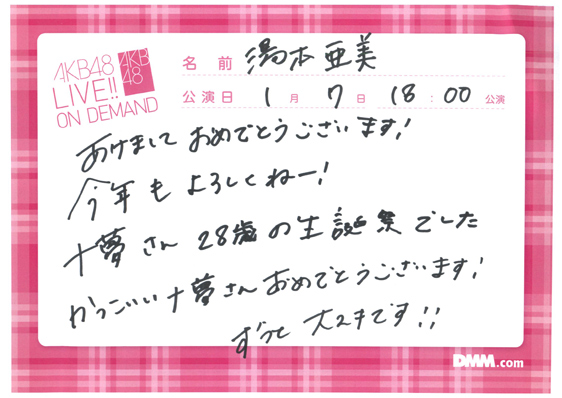 AKB48
LIVE!!
ON DEMAND
AKB
48
名前 湯本亜美
公演日 1月7日 18:00 公演
あけまして おめでとうございます!
今年も よろしくねー!
十夢さん 28歳の生誕祭でした
かっこいい十夢さんおめでとうございます!
ずっと 大スキです!!
DMM.com